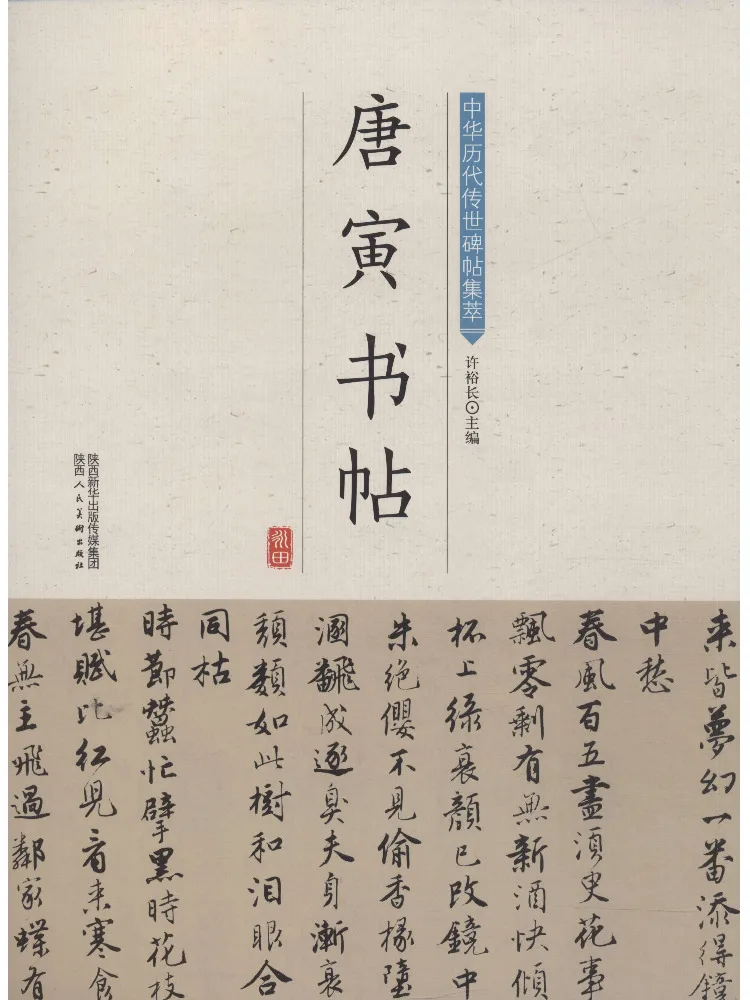 中华历代传世碑帖集萃
许裕长⊙主编
唐寅书帖
陕西新华出版传媒集团
陕西人民美术出版社
来皆夢幻一番添得鏡
中愁
春風百五盡須臾花事
飄零剩有無新酒快傾
杯上綠衰顏已改鏡中
朱絕纓不見偷香掾墮
溷飜成逐臭夫身漸衰
頹類如此樹和泪眼合
同枯
時節蠶忙擘黑時花枝
堪賦比红兒看来寒食
春無主飛過鄰家蝶有